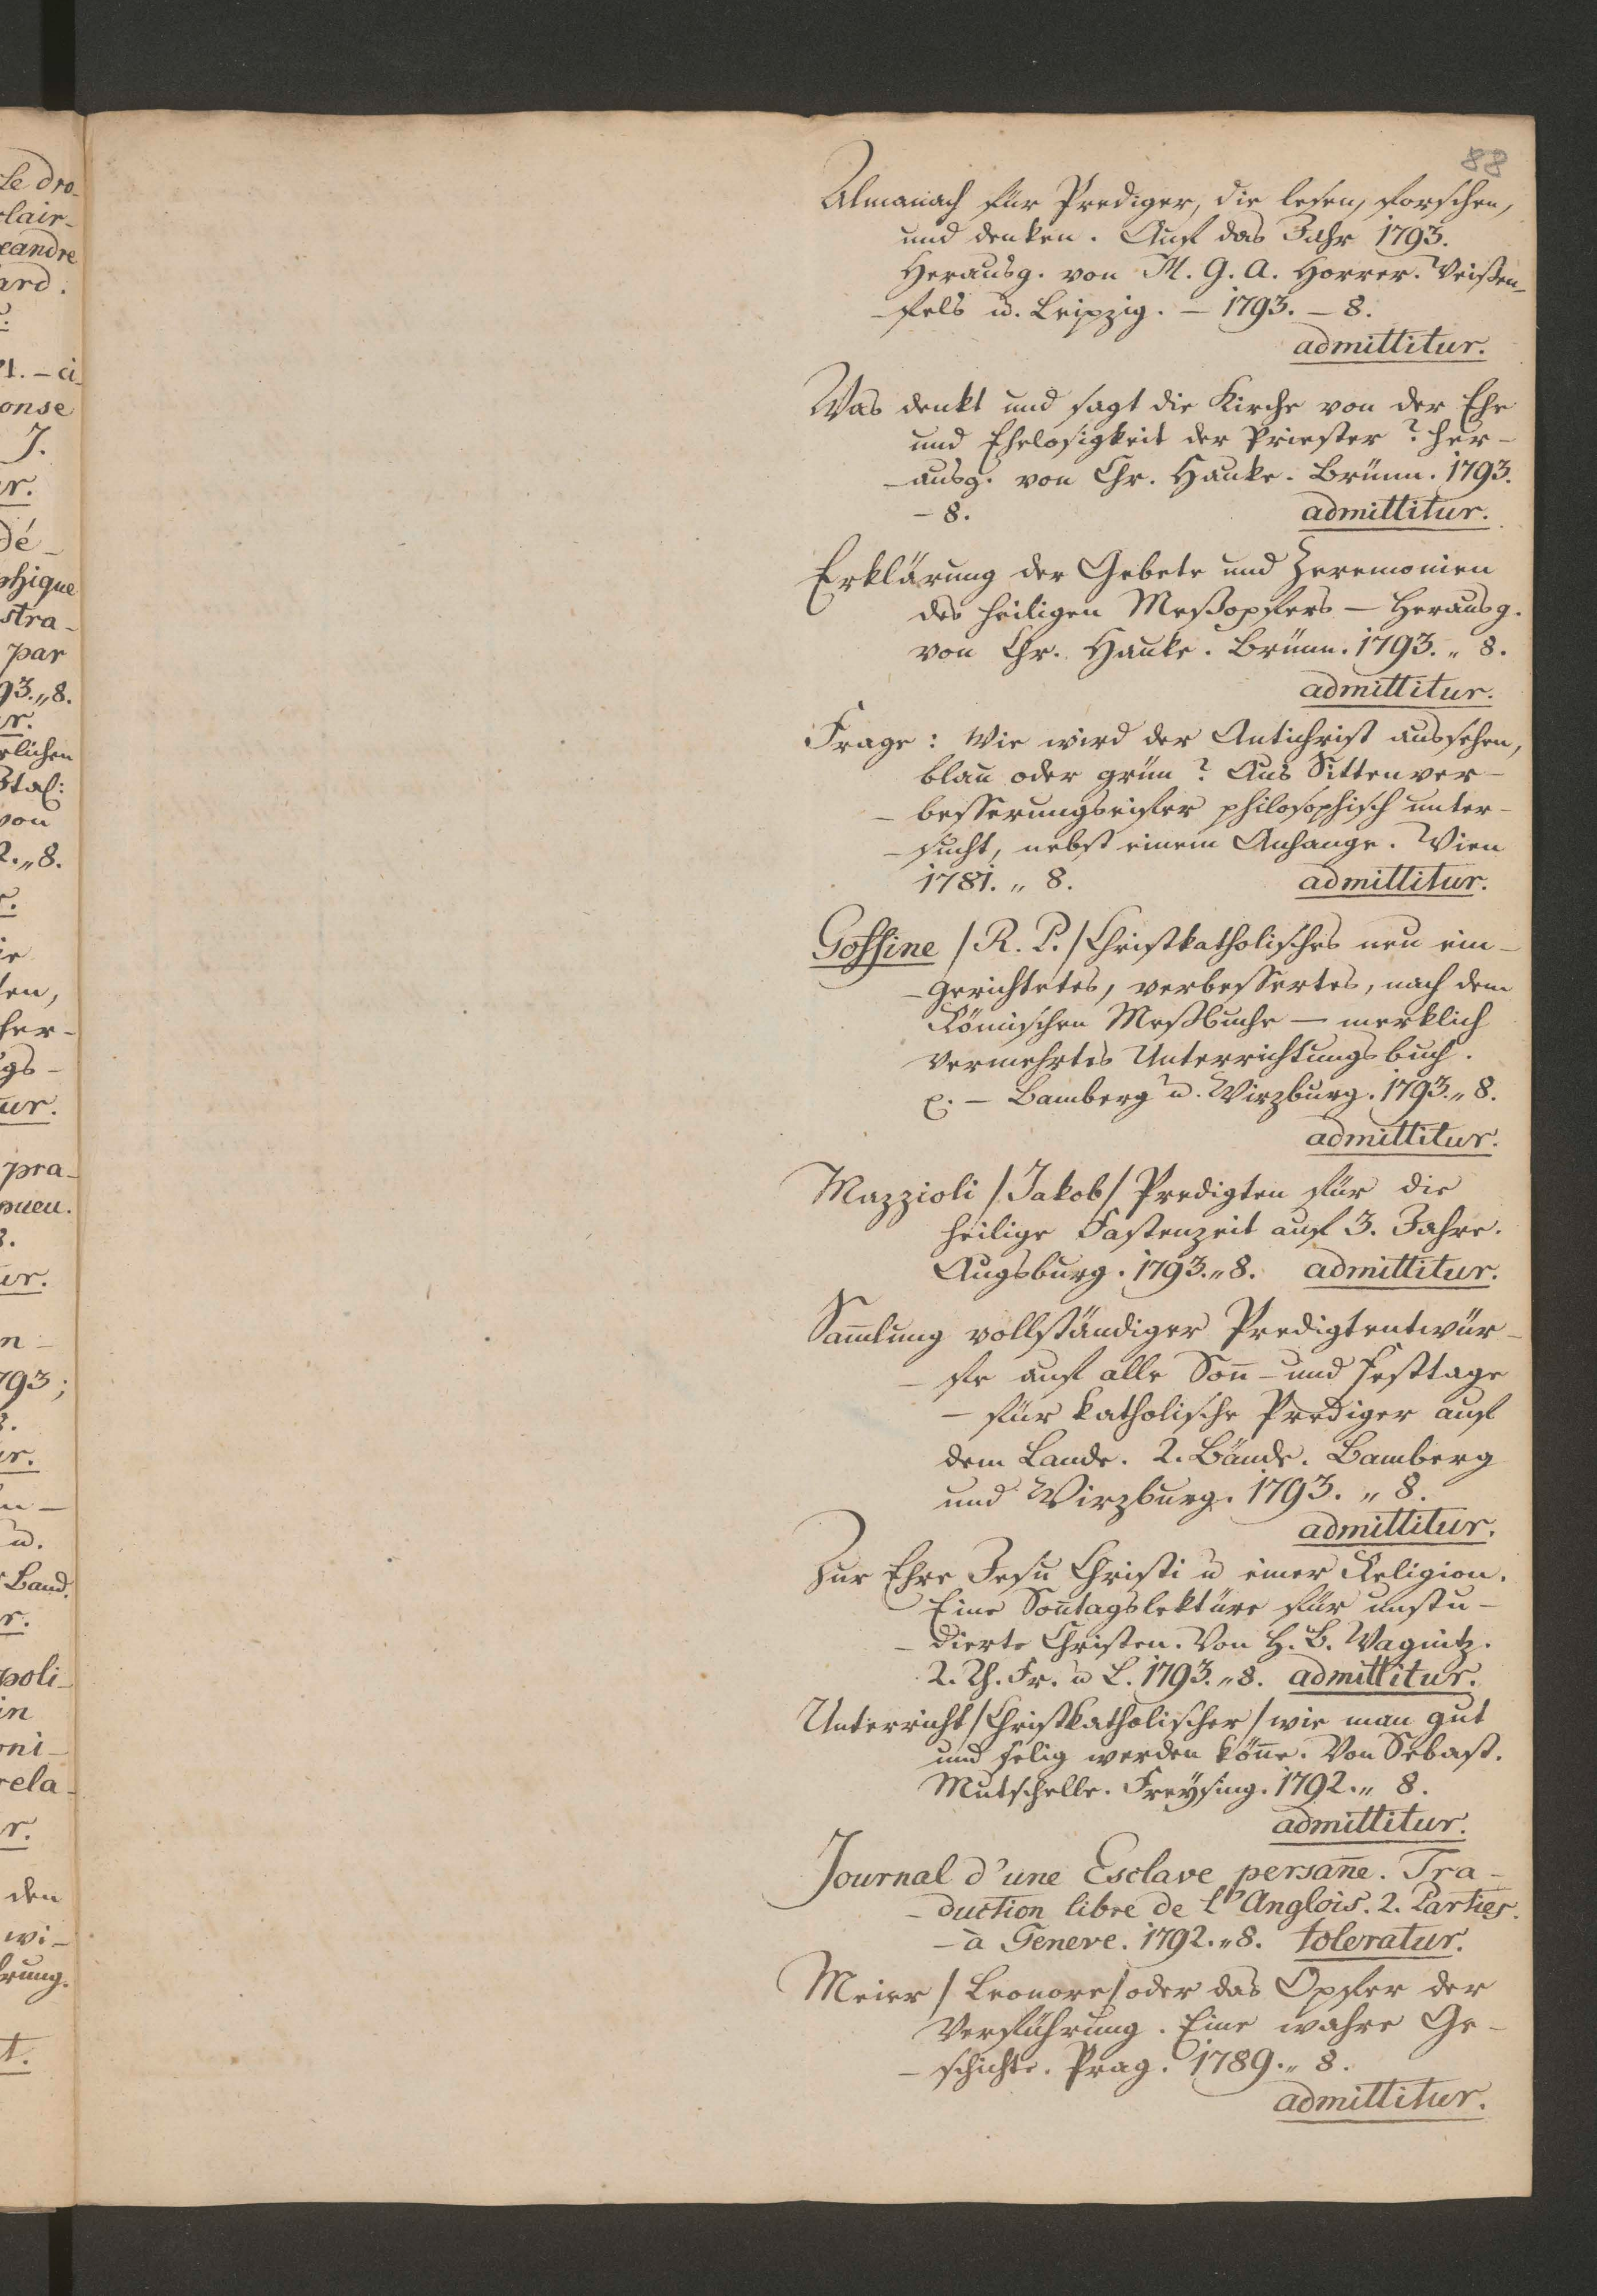 88
Almanach für Prediger, die lesen, forschen,
und denken. Auf das Jahr 1793.
Herausg. von M. G. A. Horrer. Weißen-
-fels u. Leipzig. – 1793. – 8.
admittitur.
Was denkt und sagt die Kirche von der Ehe
und Ehelosigkeit der Priester? her-
-ausg. von Chr. Hauke. Brünn. 1793.
– 8. admittitur.
Erklärung der Gebete und Zeremonien
des heiligen Meßopfers – Herausg.
von Chr. Hauke. Brünn. 1793. „ 8.
admittitur.
Frage: Wie wird der Antichrist aussehen,
blau oder grün? Aus Sittenver-
-besserungseifer philosophisch unter-
-sucht, nebst einem Anhange. Wien
1781. „ 8. admittitur.
Goffine /R. P./ Christkatholisches neu ein-
-gerichtetes, verbessertes, nach dem
Römischen Meßbuche – merklich
vermehrtes Unterrichtungsbuch.
– Bamberg u. Wirzburg. 1793. „ 8.
admittitur.
Mazzioli /Jakob/ Predigten für die
heilige Fastenzeit auf 3. Jahre.
Augsburg. 1793. „ 8. admittitur.
Sam̅lung vollständiger Predigtentwür-
-fe auf alle Son̅- und Festtage
– für katholische Prediger auf
dem Lande. 2. Bände. Bamberg
und Wirzburg. 1793. „ 8.
admittitur.
Zur Ehre Jesu Christi u einer Religion.
Eine Son̅tagslektüre für unstu-
-dierte Christen. Von H. B. Wagnitz.
2. Th. Fr. u L. 1793. „ 8. admittitur.
Unterricht /Christkatholischer/ wie man gut
und selig werden kön̅e. Von Sebast.
Mutschelle. Freysing. 1792. „ 8.
admittitur.
Journal d'une Esclave persan̅e. Tra-
-duction libre de l'Anglois. 2. Parties.
– à Geneve. 1792. „ 8. toleratur.
Meier /Leonore/ oder das Opfer der
Verführung. Eine wahre Ge-
-schichte. Prag. 1789. „ 8.
admittitur.